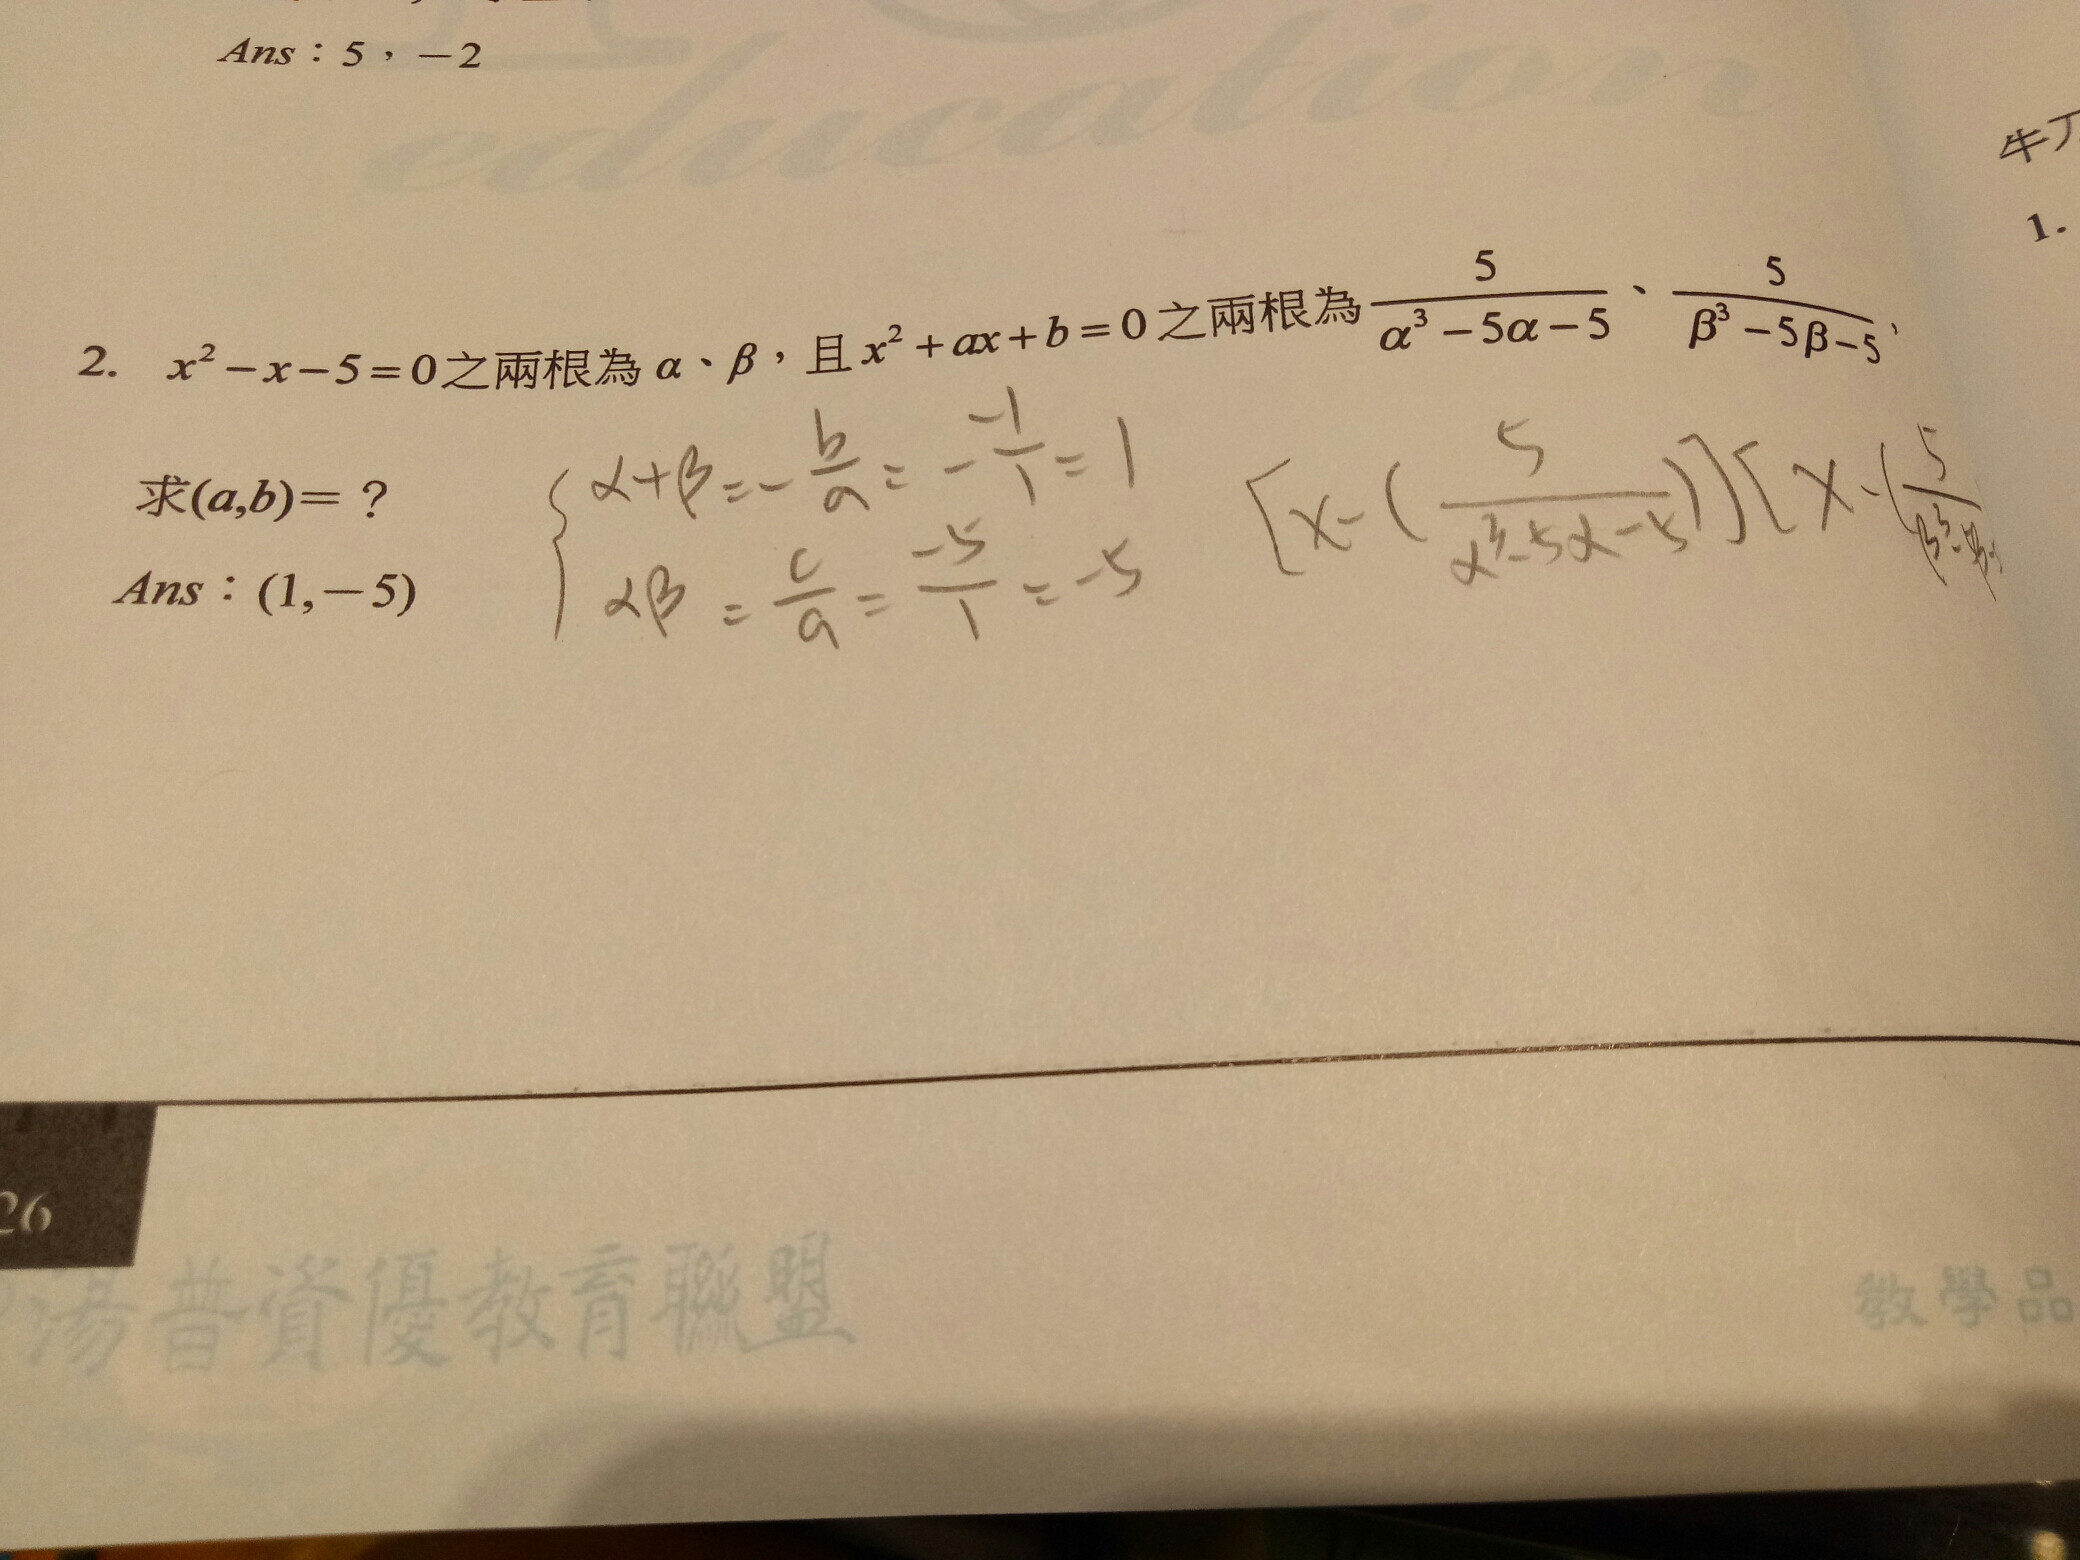 Ans：5，－2
education
牛刀
1.
2. x² － x － 5 ＝ 0 之兩根為 α、β，且 x² ＋ ax ＋ b ＝ 0 之兩根為 5/(α³ － 5α － 5)、5/(β³ － 5β － 5)，
求(a,b)＝？
Ans：(1,－5)
α+β = -b/a = - -1/1 = 1
αβ = c/a = -5/1 = -5
[x-(5/(α³-5α-5))][x-(5/
26
湯普資優教育聯盟
教學品